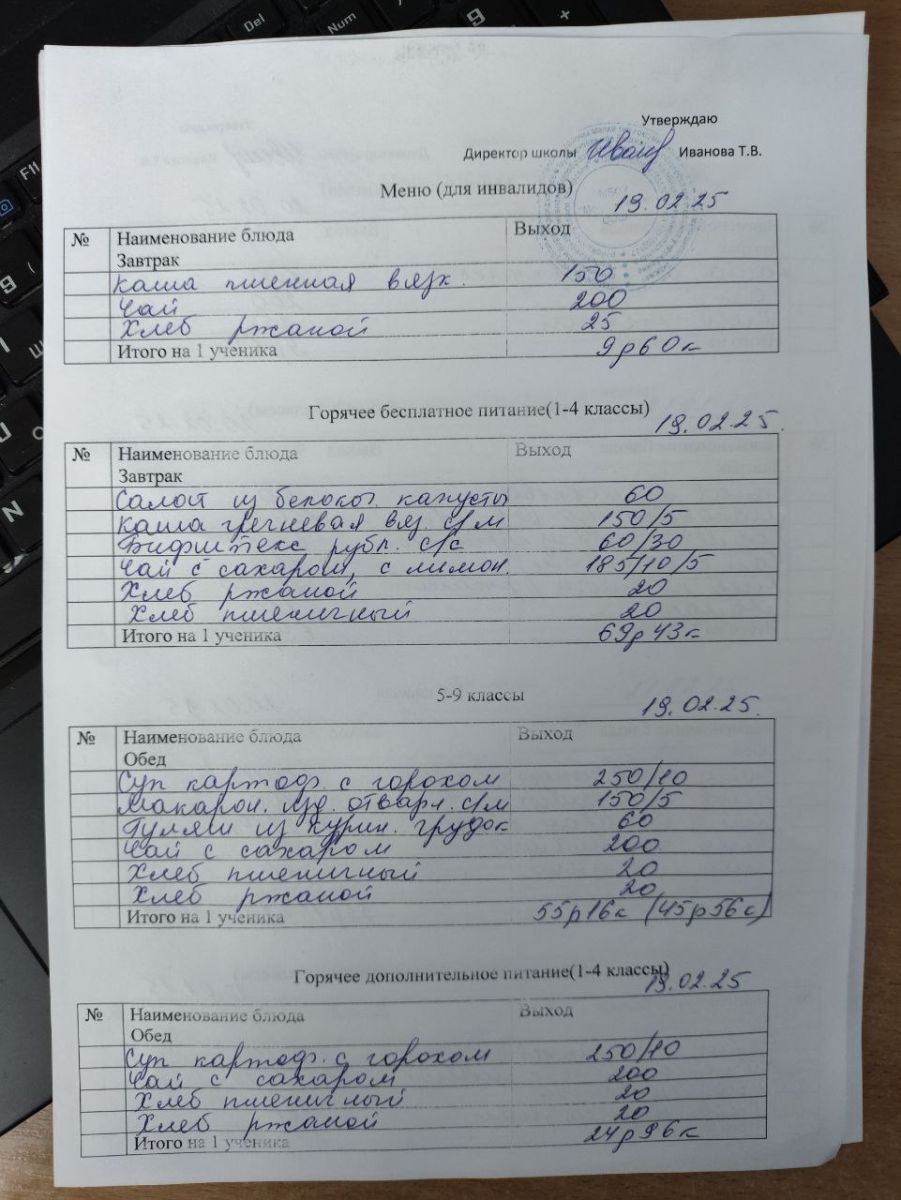 Утверждаю
Директор школы Иванова Т.В.
Меню (для инвалидов)
19.02.25
№ Наименование блюда Выход
Завтрак
Каша пшенная вязк. 150
Чай 200
Хлеб ржаной 25
Итого на 1 ученика 9р60к
Горячее бесплатное питание(1-4 классы)
19.02.25.
№ Наименование блюда Выход
Завтрак
Салат из белокоч. капусты 60
Каша гречневая вяз. с/м 150/5
Бифштекс рубл. с/с 60/30
Чай с сахаром, с лимон. 185/10/5
Хлеб ржаной 20
Хлеб пшеничный 20
Итого на 1 ученика 69р43к
5-9 классы
19.02.25.
№ Наименование блюда Выход
Обед
Суп картоф. с горохом 250/10
Макарон. изд. отварн. с/м 150/5
Гуляш из курин. грудок 60
Чай с сахаром 200
Хлеб пшеничный 20
Хлеб ржаной 20
Итого на 1 ученика 55р16к (45р56к)
Горячее дополнительное питание(1-4 классы)
19.02.25
№ Наименование блюда Выход
Обед
Суп картоф. с горохом 250/10
Чай с сахаром 200
Хлеб пшеничный 20
Хлеб ржаной 20
Итого на 1 ученика 24р96к